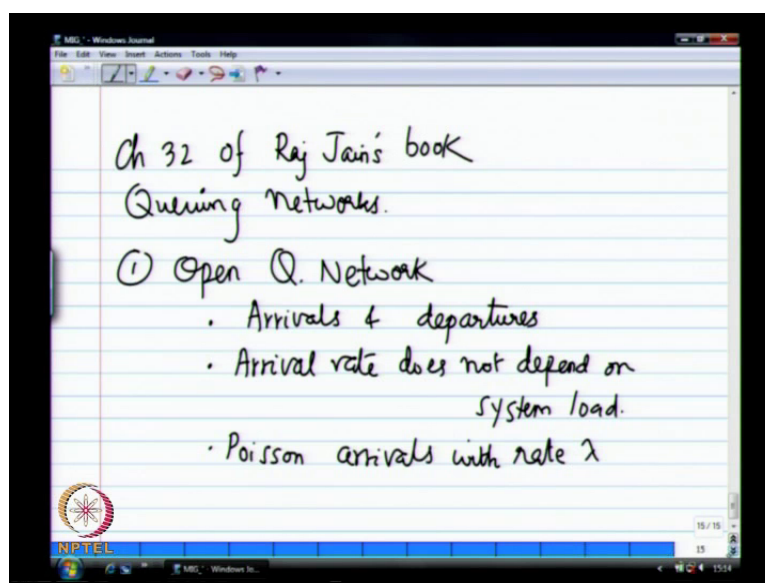 MIG_* - Windows Journal
File Edit View Insert Actions Tools Help
Ch 32 of Raj Jain's book
Queuing Networks.
① Open Q. Network
· Arrivals & departures
· Arrival rate does not depend on
system load.
· Poisson arrivals with rate λ
15 / 15
15
NPTEL
MIG_* - Windows Jo...
1514